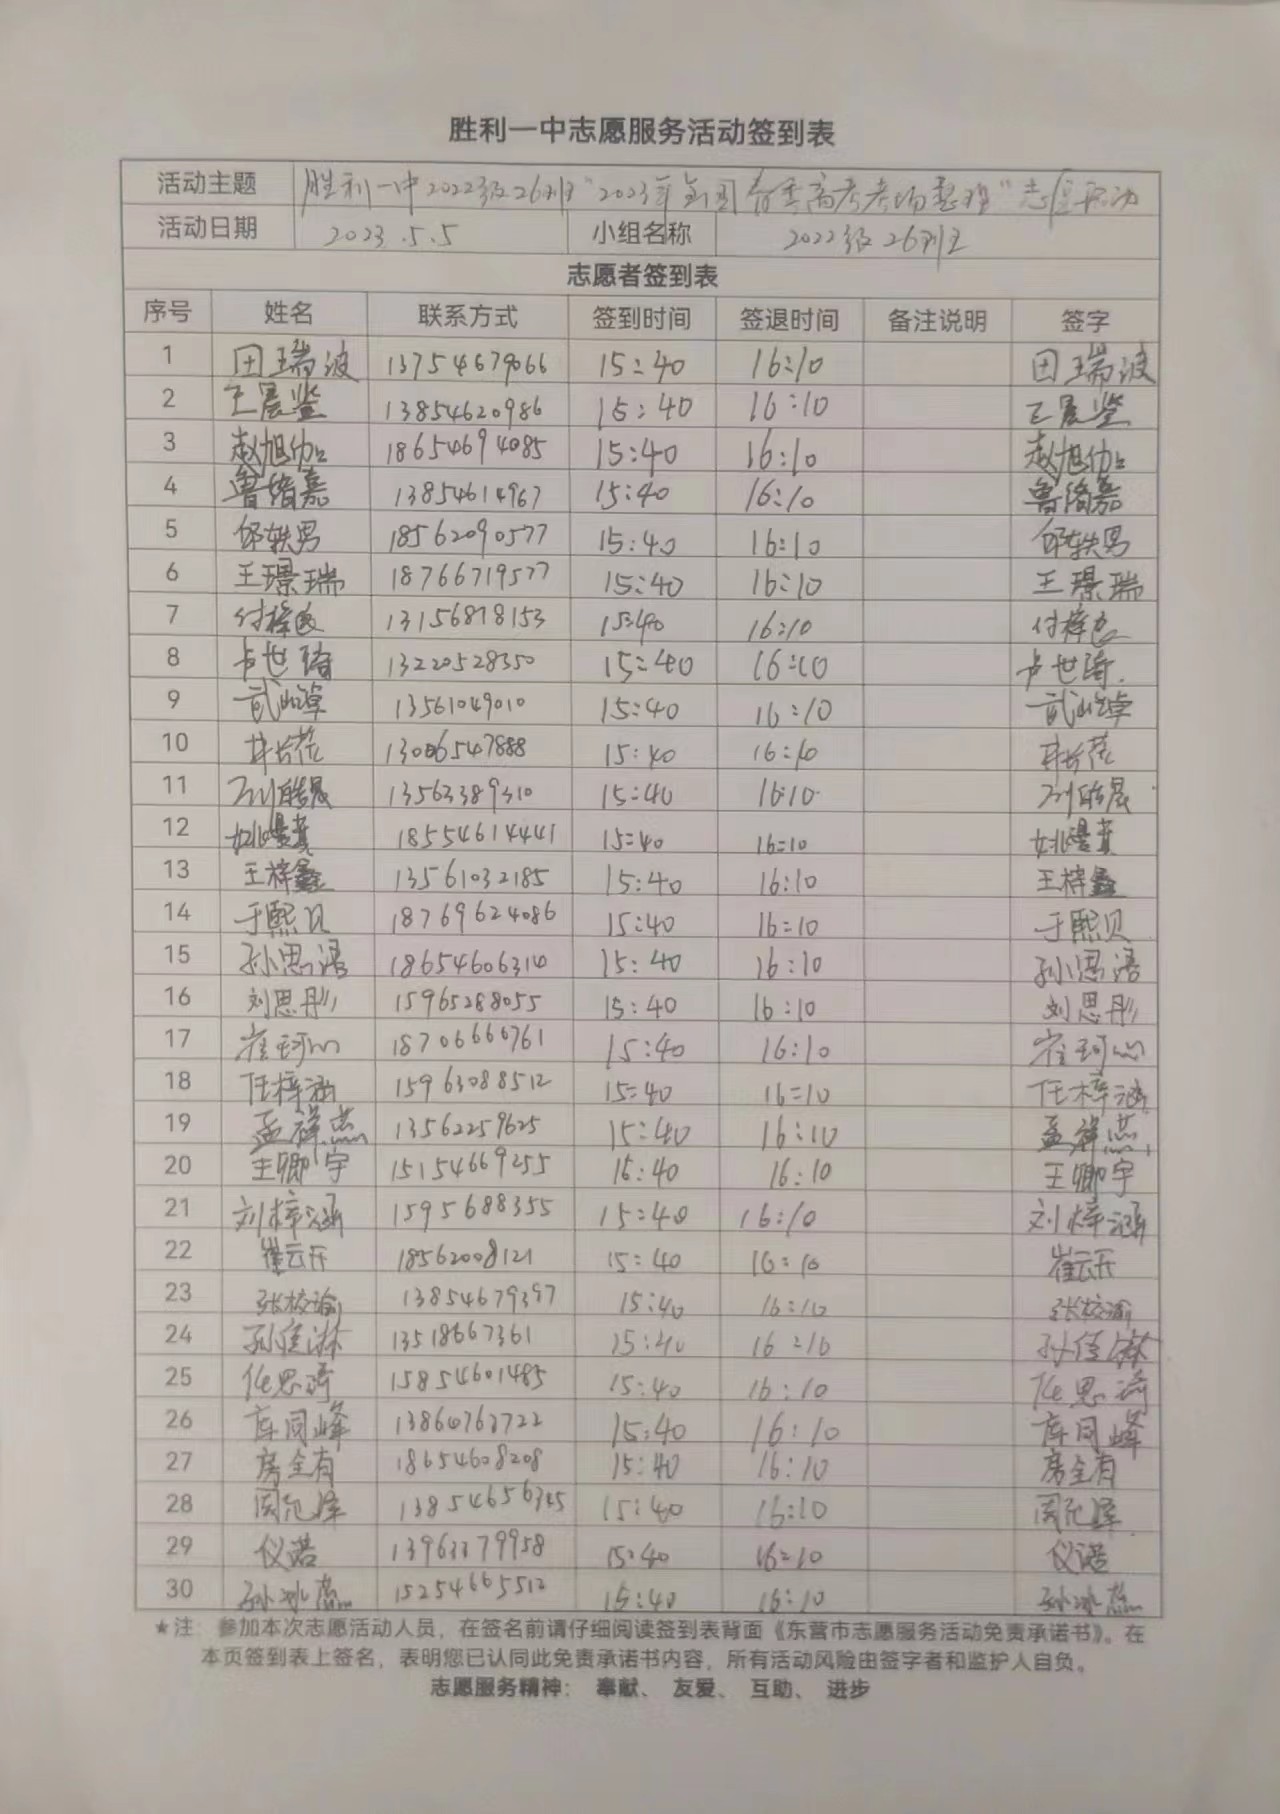 胜利一中志愿服务活动签到表
活动主题 胜利一中2022级26班"2023年全国春季高考考场整理"志愿活动
活动日期 2023.5.5 小组名称 2022级26班
志愿者签到表
序号 姓名 联系方式 签到时间 签退时间 备注说明 签字
1 田瑞波 13754679066 15:40 16:10 田瑞波
2 王晨鉴 13854620986 15:40 16:10 王晨鉴
3 赵旭伽 18654694085 15:40 16:10 赵旭伽
4 鲁绪嘉 13854614967 15:40 16:10 鲁绪嘉
5 邱轶男 18562090577 15:40 16:10 邱轶男
6 王璟瑞 18766719577 15:40 16:10 王璟瑞
7 13156818153 15:40 16:10
8 卢世琦 13220528350 15:40 16:10 卢世琦
9 13561049010 15:40 16:10
10 13006547888 15:40 16:10
11 刘皓晨 13563389310 15:40 16:10 刘皓晨
12 18554614441 15:40 16:10
13 王梓鑫 13561032185 15:40 16:10 王梓鑫
14 于熙贝 18769624086 15:40 16:10 于熙贝
15 孙思语 18654606310 15:40 16:10 孙思语
16 刘思彤 15965288055 15:40 16:10 刘思彤
17 崔珂心 18706660761 15:40 16:10 崔珂心
18 任梓涵 15963088512 15:40 16:10 任梓涵
19 孟祥燕 13562259625 15:40 16:10 孟祥燕
20 王卿宇 15154669255 15:40 16:10 王卿宇
21 刘梓涵 1595688355 15:40 16:10 刘梓涵
22 崔云开 18562008121 15:40 16:10 崔云开
23 13854679397 15:40 16:10
24 13518667361 15:40 16:10
25 15854601485 15:40 16:10
26 13860763722 15:40 16:10
27 房全有 18654608208 15:40 16:10 房全有
28 13854656345 15:40 16:10
29 仪诺 13963379958 15:40 16:10 仪诺
30 孙冰燕 15254665512 15:40 16:10 孙冰燕
★注：参加本次志愿活动人员，在签名前请仔细阅读签到表背面《东营市志愿服务活动免责承诺书》。在
本页签到表上签名，表明您已认同此免责承诺书内容，所有活动风险由签字者和监护人自负。
志愿服务精神： 奉献、 友爱、 互助、 进步